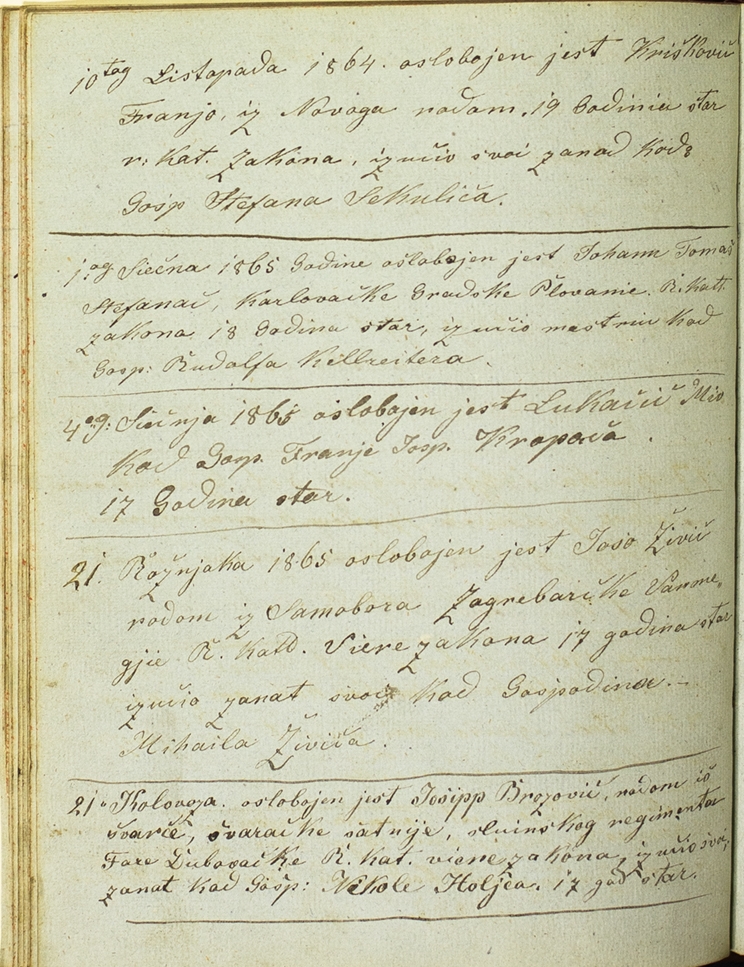 10tog Listopada 1864. oslobojen jest Krišković
Franjo, iz Novoga rodom, 19 Godinu star
r: Kat. Zakona, izučio svoi zanad Kod
Gosp Stefana Sekulića.
1.og Siečna 1865 Godine oslobojen jest Johann Tomaš
Stefanač, Karlovačke Gradske Plovanie. R. Katt.
zakona 18 Godina star, izučio mestriu Kod
Gosp: Rudolfa Killreitera.
4og: Siečnja 1865 oslobojen jest Lukačić Mio
Kod Gosp. Franje Josp. Kropača.
17 Godina star.
21. Rožnjaka 1865 oslobojen jest Joso Živić
rodom iz Samobora Zagrebaričke Varme,
gjie R. Katd. Viere zakona 17 godina star
izučio zanat svoi Kod Gospodina.
Mihaila Živića.
21. Kolovoza. oslobojen jest Josipp Brozović, rodom iš
švarče, švaračke satnije, sluinskog regimenta
Fare Dubovačke R. Kat. viere zakona, izučio svoj,
zanat Kod Gosp: Nikole Holjca. 17 god star.